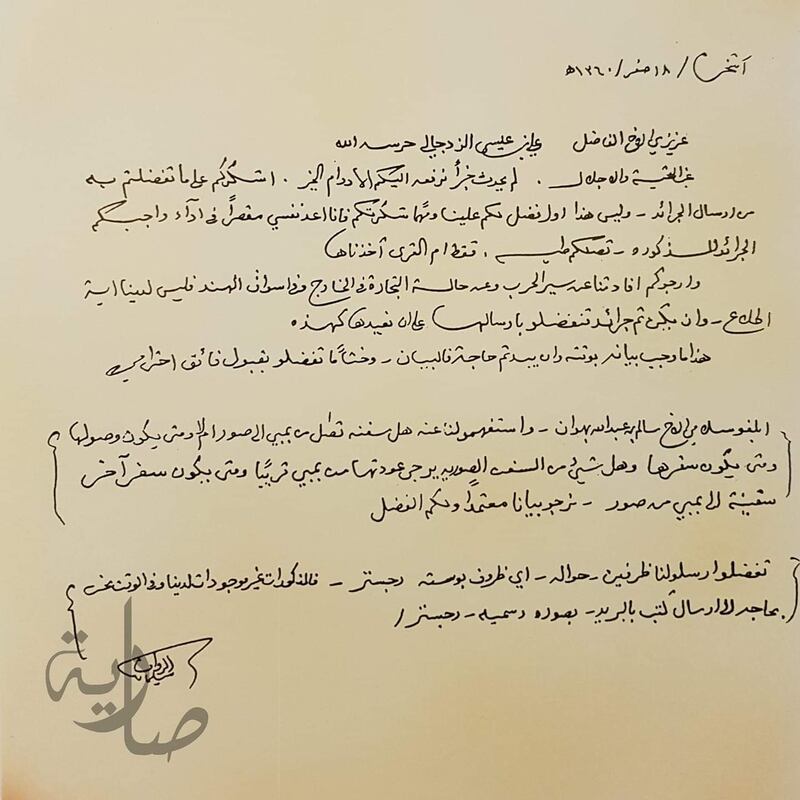 / ١٨ صفر / ١٣٦٠ه
عزيزي الاخ الفاضل علي بن عيسى الزدجالي حرسه الله
غب التحية والاجلال . لم يحدث خبراً نرفعه اليكم الا دوام الخير . اشكركم على ما تفضلتم به
من ارسال الجرائد - وليس هذا اول فضل لكم علينا ومهما شكرتكم فانا اعد نفسي مقصراً في ادآء واجبكم
الجرائد المذكوره - تصلكم طيه . فقط ام القرى أخذناها
وارجوكم افادتنا عن سير الحرب وعن حالة التجارة في الخارج وفي اسواق الهند فليس لدينا اية
اطلاع - وان يكن ثم جرائد تتفضلو بارسالها على ان نعيدها كهذه
هذا ما وجب بيانه وان يبد ثم حاجة فالبيان - وختاماً تفضلو بقبول فائق احترامي
ابلغو سلامي الاخ سالم بن عبدالله بهوان - واستفهمو لنا عنه هل سفنه تصل من بمبي الى صور ام لا ومتى يكون وصولها
ومتى يكون سفرها وهل شيئ من السفن الصوريه يرجى عودتها من بمبي قريبًا ومتى يكون سفر آخر
سفينة الى بمبي من صور - نرجو بيانا معتمدًا ولكم الفضل
تفضلوا رسلو لنا ظرفين - حواله - اي ظروف بوسته رجستر - فالمذكورات غير موجودات لدينا وفي الوقت نحن
بحاجه الى ارسال كتب بالبريد - بصوره رسميه - رجستر /